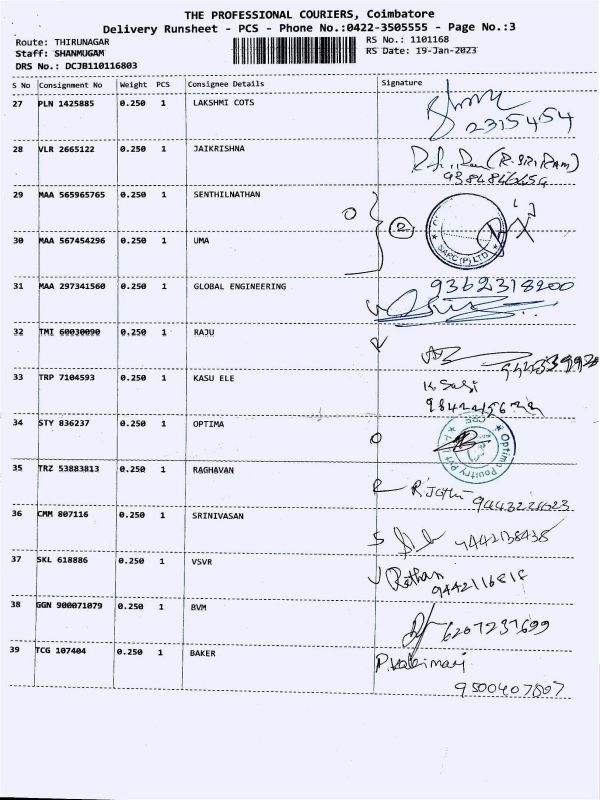 THE PROFESSIONAL COURIERS, Coimbatore
Delivery Runsheet - PCS - Phone No.:0422-3505555 - Page No.:3
Route: THIRUNAGAR RS No.: 1101168
Staff: SHANMUGAM RS Date: 19-Jan-2023
DRS No.: DCJB110116803
S No Consignment No Weight PCS Consignee Details Signature
27 PLN 1425885 0.250 1 LAKSHMI COTS
2315454
28 VLR 2665122 0.250 1 JAIKRISHNA (R.SRIRAM)
29 MAA 565965765 0.250 1 SENTHILNATHAN
2
SAPC (P) LTD
30 MAA 567454296 0.250 1 UMA
31 MAA 297341560 0.250 1 GLOBAL ENGINEERING 9362318200
32 TMI 60030090 0.250 1 RAJU
33 TRP 7104593 0.250 1 KASU ELE
34 STY 836237 0.250 1 OPTIMA
Optima Poultry Pvt
35 TRZ 53883813 0.250 1 RAGHAVAN
36 CMM 807116 0.250 1 SRINIVASAN
37 SKL 618886 0.250 1 VSVR
Rathan
38 GGN 900071079 0.250 1 BVM
6207237699
39 TCG 107404 0.250 1 BAKER
9500407807